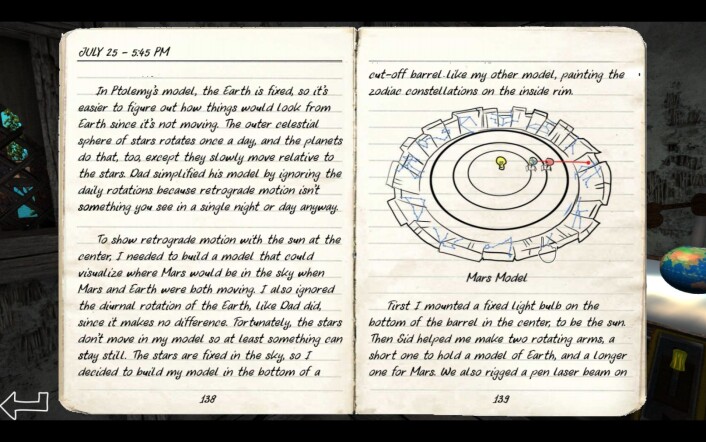 JULY 25 - 5:45 PM
In Ptolemy's model, the Earth is fixed, so it's
easier to figure out how things would look from
Earth since it's not moving. The outer celestial
sphere of stars rotates once a day, and the planets
do that, too, except they slowly move relative to
the stars. Dad simplified his model by ignoring the
daily rotations because retrograde motion isn't
something you see in a single night or day anyway.
To show retrograde motion with the sun at the
center, I needed to build a model that could
visualize where Mars would be in the sky when
Mars and Earth were both moving. I also ignored
the diurnal rotation of the Earth, like Dad did,
since it makes no difference. Fortunately, the stars
don't move in my model so at least something can
stay still. The stars are fixed in the sky, so I
decided to build my model in the bottom of a
138
cut-off barrel like my other model, painting the
zodiac constellations on the inside rim.
Mars Model
First I mounted a fixed light bulb on the
bottom of the barrel in the center, to be the sun.
Then Sid helped me make two rotating arms, a
short one to hold a model of Earth, and a longer
one for Mars. We also rigged a pen laser beam on
139